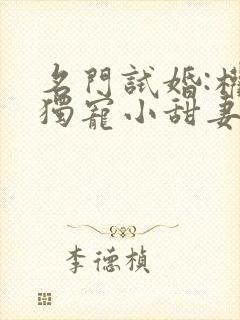 名門試婚:
獨寵小甜妻
李德楨